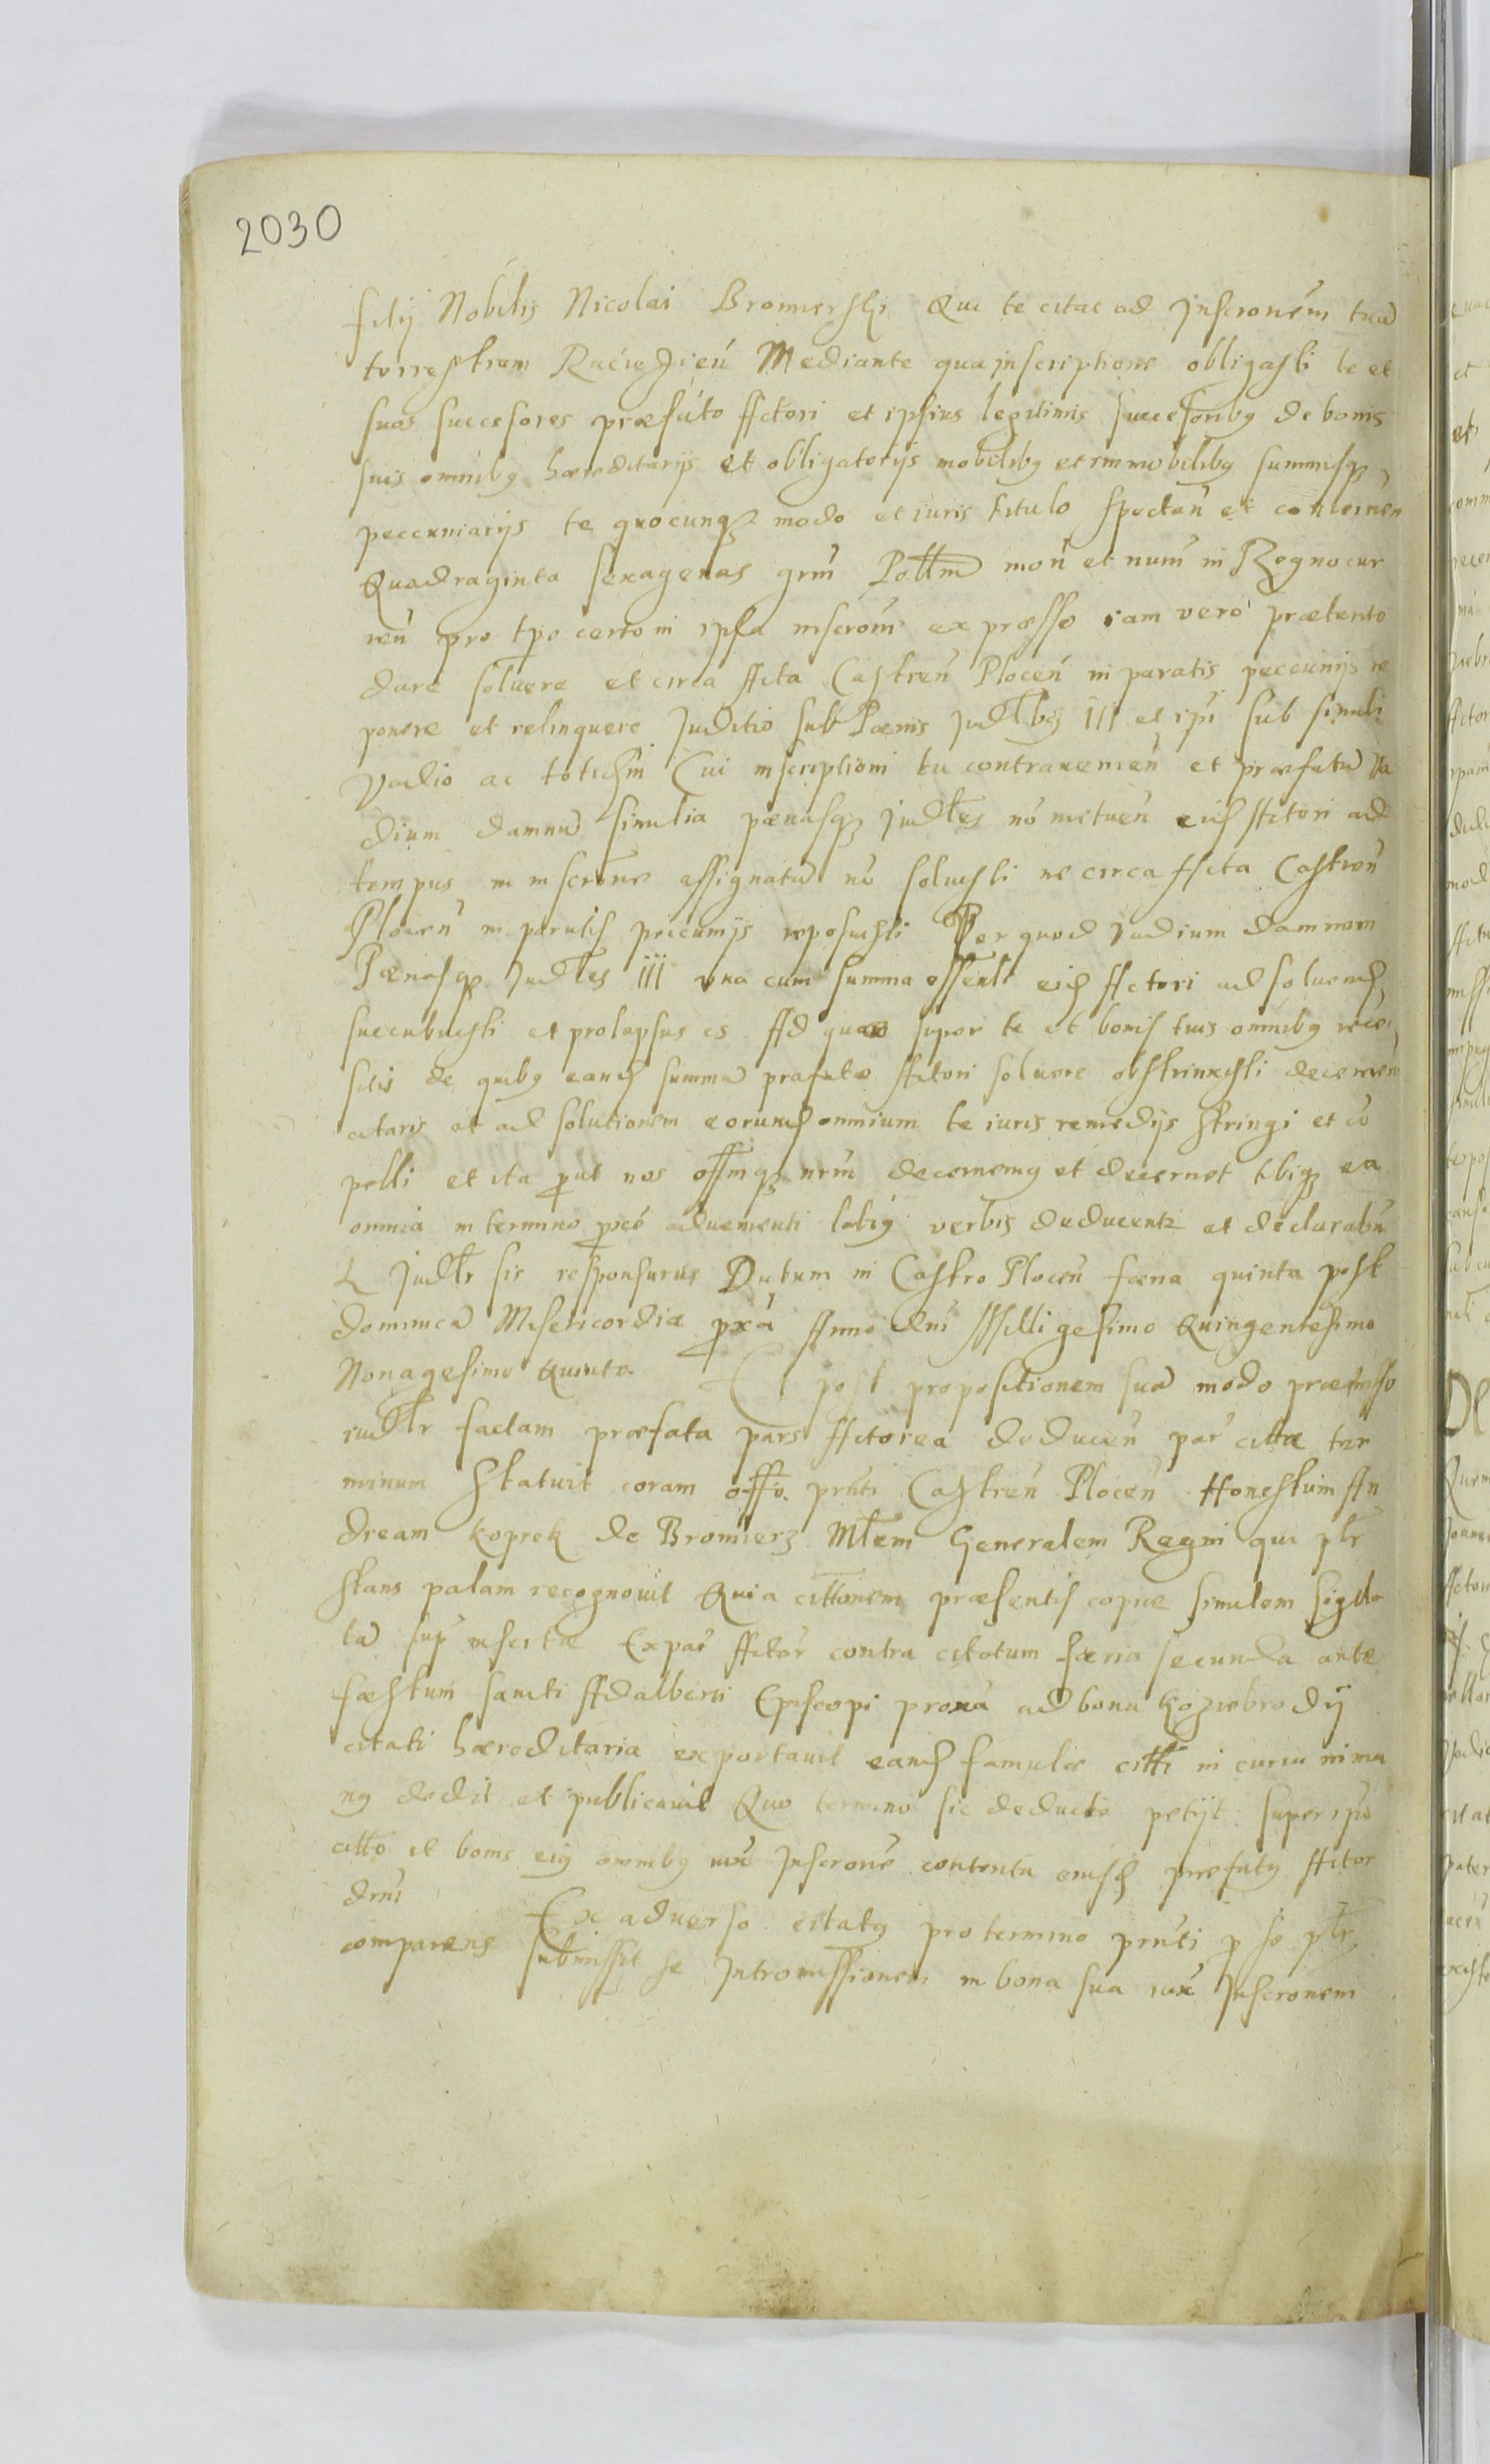 2030
filij Nobilis Nicolai Bromierski Qui te citat ad Inscronem tua
terrestrem Raciazien Mediante qua inscriptione obligasti te et
suos successores præfato Actori et ipsius legitimis successoribg de bonis
suis omnibg hæreditarijs et obligatorijs mobilibg et immobilibg summisq
peccuniarijs te quocunq modo et iuris titulo spectan et concernen
Quadraginta sexagenas grm Pollm mon et num in Regno cur
ren pro tpe certo in ipsa inscrom expresso iam vero prætento
dare soluere et circa Acta Castren Plocen in paratis peccunijs re
ponere et relinquere Juditio sub Pœnis Judlbg III et ipi sub simili
Vadio ac totidem Cui inscriptioni tu contraxenien et præfatu Va
dium damnu similia pœnasq Judles no metuen eid Actori ad
tempus in inscrone assignatu no soluisti ne circa Acta Castren
Plocen in paratis peccunijs reposuisti Per quod vadium damnum
Pœnasq Judles III vna cum summa essenli eid Actori ad soluend
succubuisti et prolapsus es Ad quæ super te et bonis tuis omnibg rece
sitis de quibg eand summa præfato Actori soluere obstrinxisti decernen
citaris et ad solutionem eorund omnium te iuris remedijs stringi et co
pelli et ita put nos offmq nrm decernemg et decernet tibiq ea
omnia in termino pco aduenienti latig verbis deducentr et declarabn
Judlr sis responsurus Datum in Castro Plocen feria quinta post
dominica Misericordiæ pxa Anno dni Milligesimo Quingentesimo
Nonagesimo Quinto. Et post propositionem sua modo præmisso
iudlr factam præfata pars Actorea deducen par citta ter
minum Statuit coram offo. pnti Castren Plocen Honestum An
dream koprek de Bromierz Mlem Generalem Regni qui plr
stans palam recognouit Quia cittonem præsentis copiæ similem sigilla
ta sup insertæ Ex par Actor contra citatum færia secunda ante
fæstum sancti Adalberti Episcopi proxa ad bona koziebrodij
citati hæreditaria exportauit eand famulæ citti in curia in ma
ng dedit et publicauit Quo termino sic deducto petijt super ipso
citto et bonis eig omnibg iux Inscrone contenta eiusd præfatg Actor
drni Ex aduerso citatg pro termino pnti p se plr
comparens submissit se Intromissionem in bona sua iux Inscronem